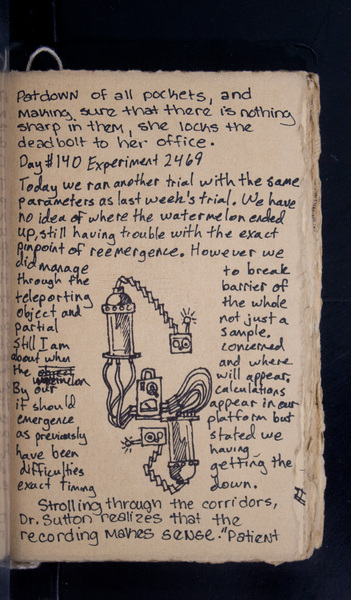 Patdown of all pockets, and
making sure that there is nothing
sharp in them, she locks the
deadbolt to her office.
Day #140 Experiment 2469
Today we ran another trial with the same
parameters as last week's trial. We have
no idea of where the watermelon ended
up, still having trouble with the exact
pinpoint of reemergence. However we
did manage to break
through the barrier of
teleporting the whole
object and not just a
partial sample.
Still I am concerned
about when and where
the watermelon will appear.
By our calculations
it should appear in our
emergence platform but
as previously stated we
have been having
difficulties getting the
exact timing down.
Strolling through the corridors,
Dr. Sutton realizes that the
recording makes sense. "Patient